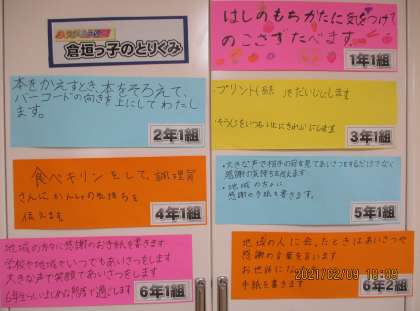 倉垣っ子のとりくみ
はしのもちかたに気をつけて
のこさずたべます。
1年1組
本をかえすとき、本をそろえて、
バーコードの向きを上にしてわたし
ます。
2年1組
プリント
だいじにします
3年1組
食ベキリンをして、調理員
さんにかんしゃの気持ちを
伝えます。
4年1組
・大きな声で相手の目を見てあいさつをするだけでなく
感謝の気持ちも伝えます
・地域の方に
感謝の手紙を書きます。
5年1組
地域の方々に感謝のお手紙を書きます
学校や地域でいつでもあいさつをします
大きな声で笑顔であいさつをします
で過ごします
6年1組
地域の人に会ったときはあいさつや
感謝の言葉を言います
お世話に
手紙を書きます
6年2組
2021/02/09